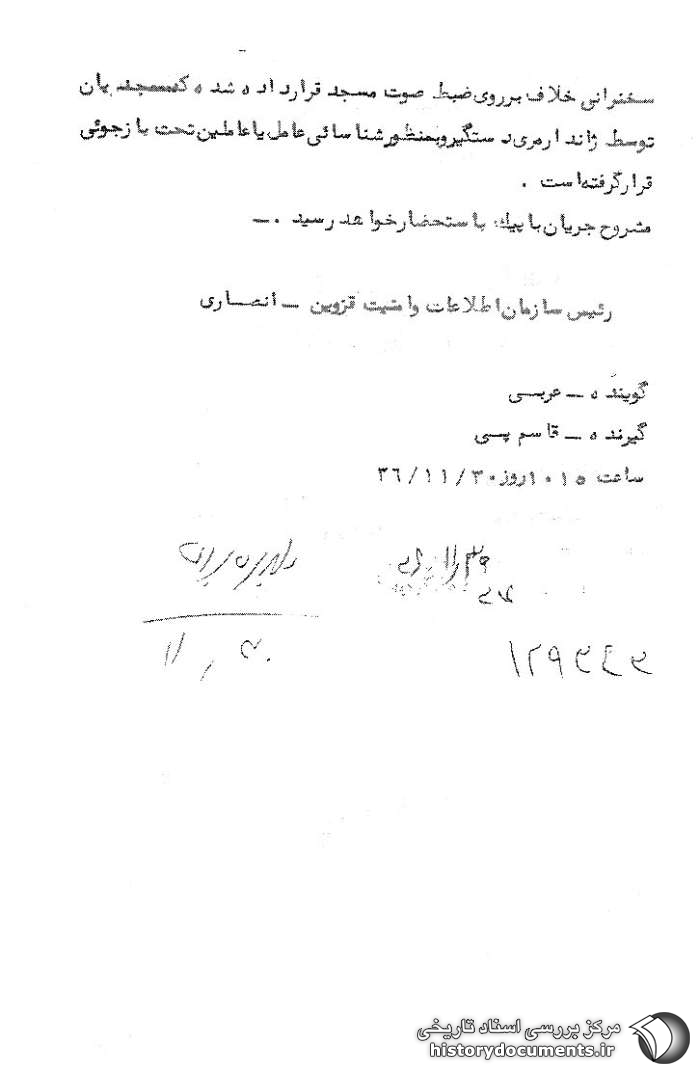 سخنرانی خلاف برروی ضبط صوت مسجد قرارداده شده که مسجدیان
توسط ژاندارمری دستگیر و بمنظور شناسائی عامل یا عاملین تحت بازجوئی
قرار گرفته است .
مشروح جریان با پیک باستحضار خواهد رسید . ــ
رئیس سازمان اطلاعات و امنیت قزوین ــ انصاری
گوینده ــ عربسی
گیرنده ــ قاسم پسی
ساعت ۱۰۱۵ روز ۳۶/۱۱/۳۰
مرکز بررسی اسناد تاریخی
historydocuments.ir